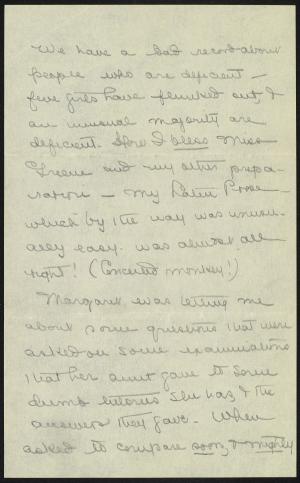 We have a bad record about
people who are deficient –
five girls have flunked out, &
an unusual majority are
deficient. Here I bless Miss
Greene and my other prepa-
ration – my Latin Prose –
which by the way was unusu-
ally easy – was almost all
right! (Conceited monkey!)
Margaret was telling me
about some questions that were
asked on some examinations
that her aunt gave to some
dumb she has & the
answers they gave. When
asked to compare soon, & mighty